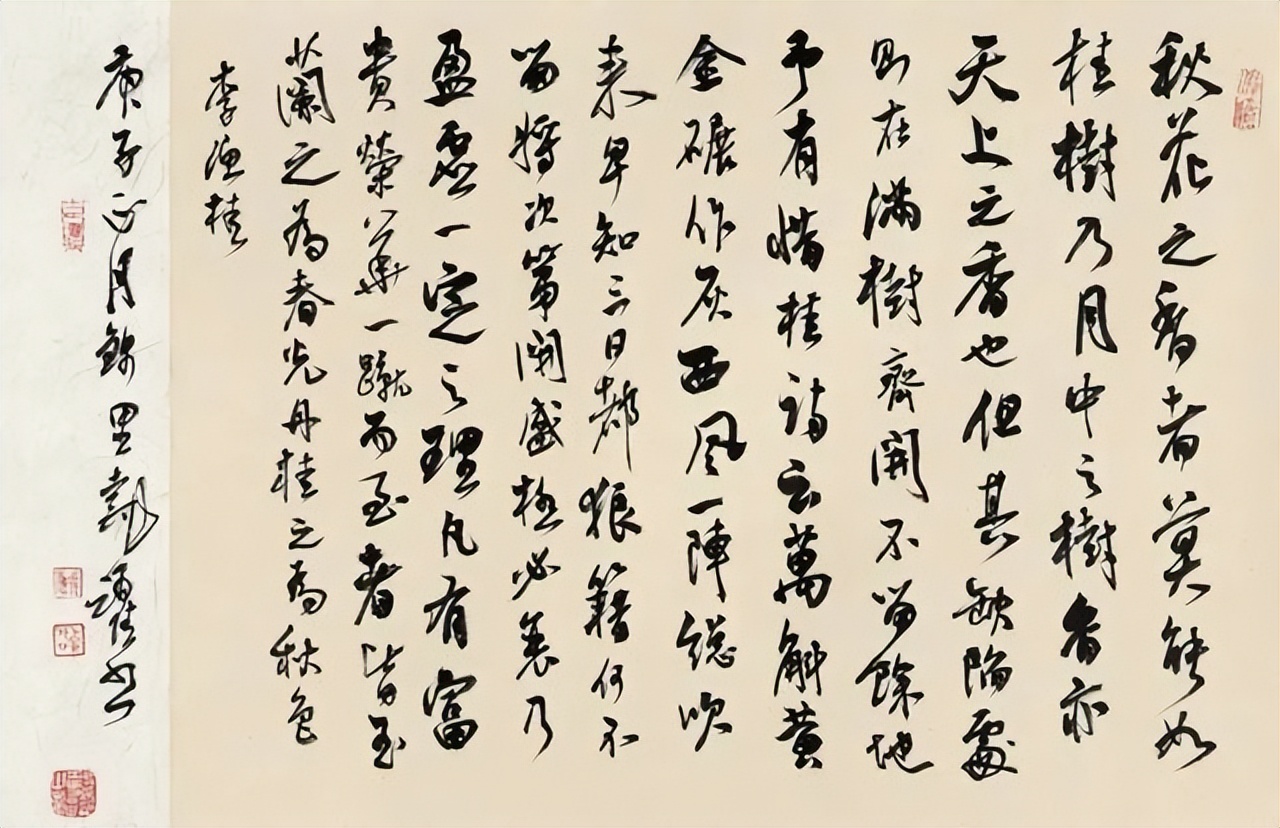 秋花之香者莫能如
桂樹乃月中之樹香亦
天上之香也但其缺陷處
則在滿樹齊開不留餘地
予有惜桂詩云萬斛黃
金碾作灰西風一陣總吹
來早知三日都狼籍何不
留將次第開盛極必衰乃
盈虛一定之理凡有富
貴榮華一蹴而至者皆玉
蘭之為春光丹桂之為秋色
李漁桂
庚子正月錦里躍書